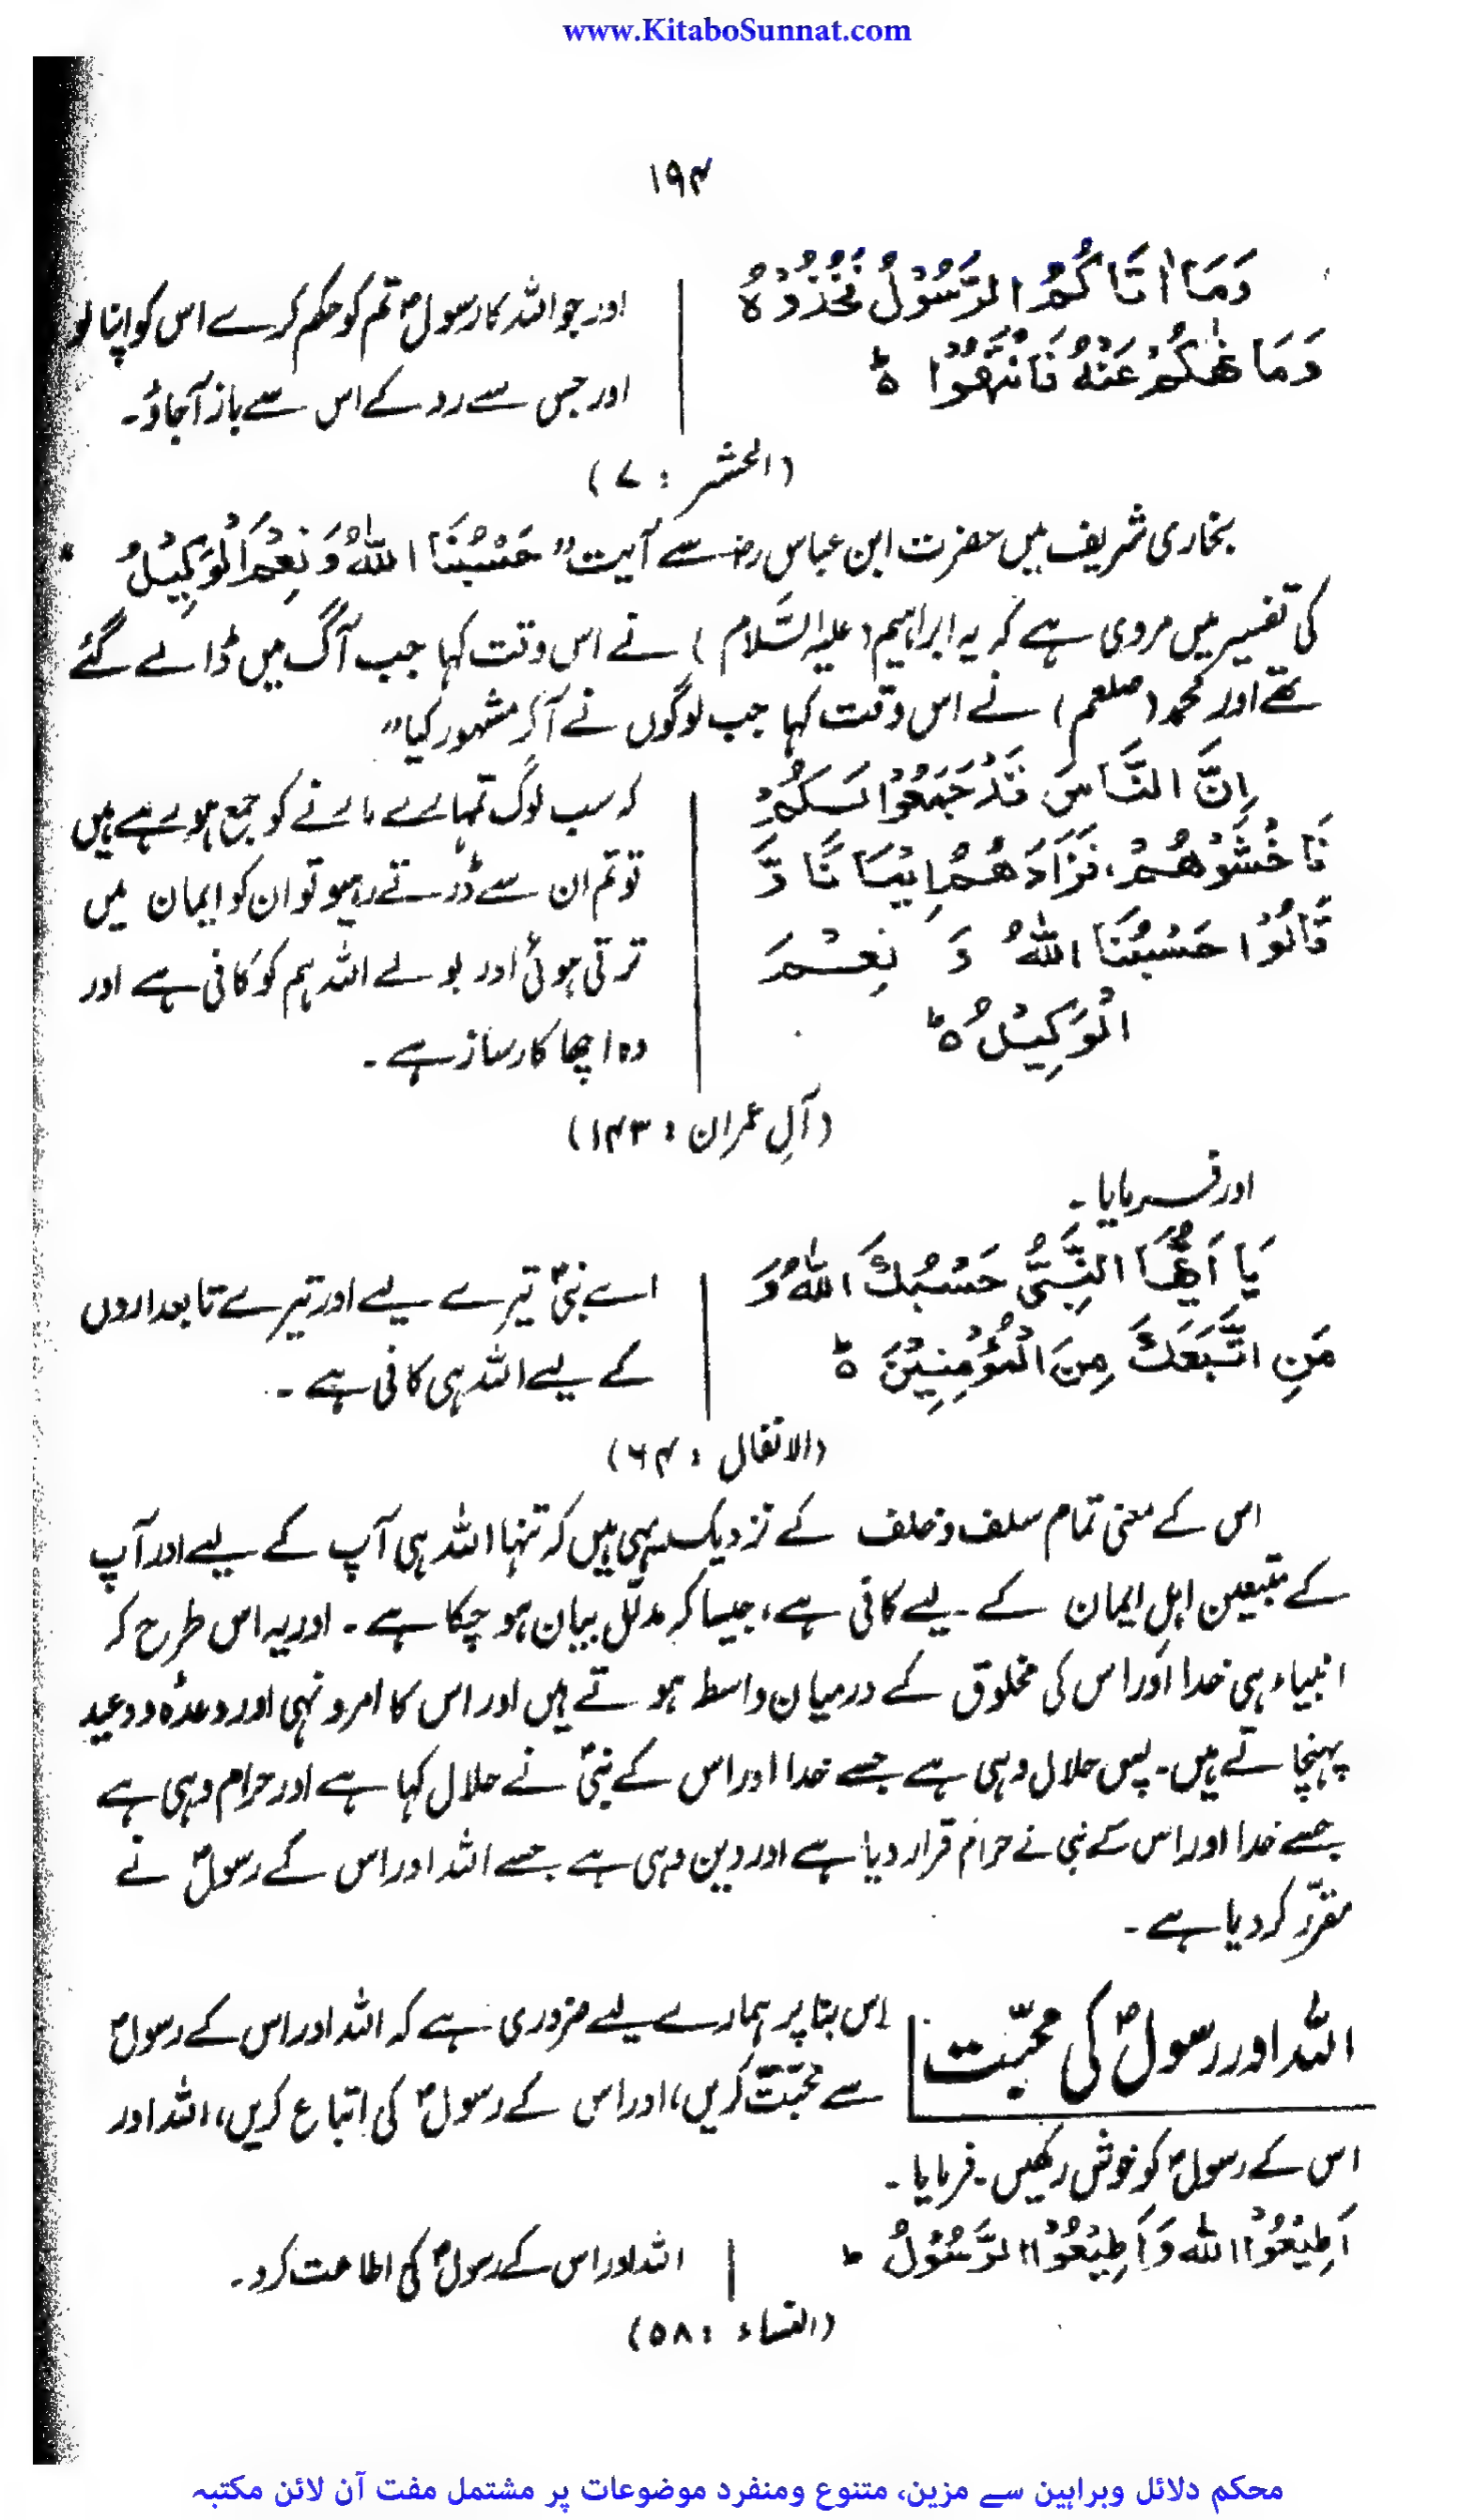 www.KitaboSunnat.com
۱۹۴
وَمَا اٰتَاكُمُ الرَّسُوْلُ فَخُذُوْهُ
وَمَا نَهٰكُمْ عَنْهُ فَانْتَهُوْا ط
اور جو اللہ کا رسولؐ تم کو حکم کرے اس کو اپنا لو
اور جس سے روکے اس سے باز آجاؤ۔
(الحشر : ۷)
بخاری شریف میں حضرت ابن عباس رضؓ سے آیت ”حَسْبُنَا اللّٰهُ وَنِعْمَ الْوَكِيْلُ“
کی تفسیر میں مروی ہے کہ یہ ابراہیم (علیہ السّلام) نے اس وقت کہا جب آگ میں ڈالے گئے
تھے اور محمد (صلعم) نے اس وقت کہا جب لوگوں نے آکر مشہور کیا”
اِنَّ النَّاسَ قَدْ جَمَعُوْا لَكُمْ
فَاخْشَوْهُمْ، فَزَادَهُمْ اِيْمَانًا وَّ
قَالُوْا حَسْبُنَا اللّٰهُ وَ نِعْمَ
الْوَكِيْلُ ط
کہ سب لوگ تمہارے مارنے کو جمع ہو رہے ہیں
تو تم ان سے ڈرتے رہیو تو ان کو ایمان میں
ترقی ہوئی اور بولے اللہ ہم کو کافی ہے اور
وہ اچھا کارساز ہے۔
(آلِ عمران : ۱۴۳)
اور فرمایا۔
يَا اَيُّهَا النَّبِيُّ حَسْبُكَ اللّٰهُ وَ
مَنِ اتَّبَعَكَ مِنَ الْمُؤْمِنِيْنَ ط
اے نبیؐ تیرے لیے اور تیرے تابعداروں
کے لیے اللہ ہی کافی ہے۔
(الانفال : ۶۴)
اس کے معنی تمام سلف و خلف کے نزدیک یہی ہیں کہ تنہا اللہ ہی آپ کے لیے اور آپ
کے متبعین اہلِ ایمان کے لیے کافی ہے، جیسا کہ مدلّل بیان ہو چکا ہے۔ اور یہ اس طرح کہ
انبیاء ہی خدا اور اس کی مخلوق کے درمیان واسط ہوتے ہیں اور اس کا امر و نہی اور وعدہ و وعید
پہنچاتے ہیں۔ پس حلال وہی ہے جسے خدا اور اس کے نبیؐ نے حلال کہا ہے اور حرام وہی ہے
جسے خدا اور اس کے نبی نے حرام قرار دیا ہے اور دین وہی ہے جسے اللہ اور اس کے رسولؐ نے
مقرّر کر دیا ہے۔
اللہ اور رسولؐ کی محبّت
اِس بنا پر ہمارے لیے ضروری ہے کہ اللہ اور اس کے رسولؐ
سے محبّت کریں، اور اس کے رسولؐ کی اتباع کریں، اللہ اور
اس کے رسولؐ کو خوش رکھیں۔ فرمایا۔
اَطِيْعُوْا اللّٰهَ وَاَطِيْعُوْا الرَّسُوْلُ ط
اللہ اور اس کے رسولؐ کی اطاعت کرو۔
(النساء : ۵۸)
محکم دلائل وبراہین سے مزین، متنوع ومنفرد موضوعات پر مشتمل مفت آن لائن مکتبہ